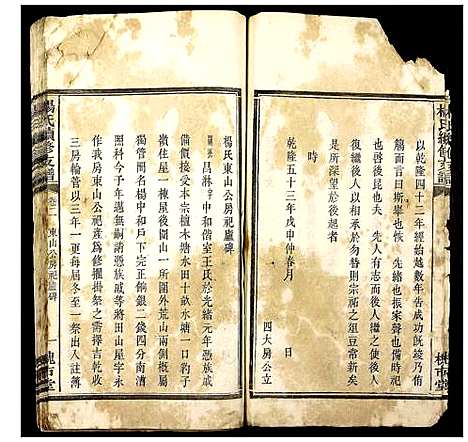 以乾隆四十二年經始越數年告成功旣竣乃侑
一言曰斯舉也恢　先緒也振家聲也備時祀
也啓後昆也夫　先人有志而後人繼之使後人
復後人以相承於勿替則宗祠之俎豆常新矣
是所深望於後起者
時
乾隆五十三年戊申仲春月　日
四大房公立
楊氏續修支譜
楊氏東山公房祀廬碑
昌林中和偕室王氏於光緒元年憑族戚
備價接受本宗檀木塘水田十畝水塘一口豹子
嶺住屋一棟屋後園山一所園外荒山兩側歸大
獨管閘名楊中和戶下完正餉銀二錢四分南漕
照科今予年邁無嗣請憑族戚等將田山屋宇永
作我房東山公祀產爲修擢掛祭之需擇請吉心
三房輪管以三年一更每屆冬至一祭出入註簿
楊氏續修支譜
卷二　東山公房祀廬碑
一　槐市堂